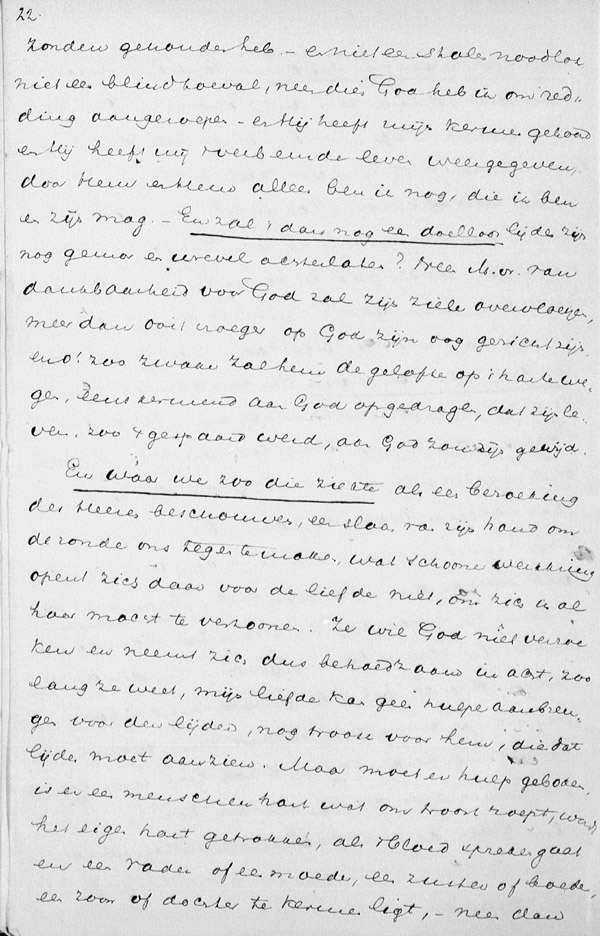 22.
zonden gehouden heb. – en niet een stale noodlot
niet een blind toeval, neen dien God heb ik om red-
ding aangeroepen – en Hij heeft mijn kermen gehoord
en Hij heeft mij 't verbeurde leven weergegeven,
door Hem en Hem alleen ben ik nog, die ik ben
en zijn mag. – En zal 't dan nog een doelloos lijden zijn
nog gemor en wrevel achterlaten? Neen M.vr. van
dankbaarheid voor God zal zijn ziele overvloeyen,
meer dan ooit vroeger op God zijn oog gericht zijn
en o! zoo zwaar zal hem de gelofte op 't harte we-
gen, eens kermend aan God opgedragen, dat zijn le-
ven, zoo 't gespaard werd, aan God zou zijn gewijd.
En waar we zoo die ziekte als een bezoeking
des Heeren beschouwen, een slaan van zijn hand om
de zonde ons tegen te maken, wat schoone werkkring
opent zich daar voor de liefde niet, om zich in al
haar macht te vertoonen. Ze wil God niet verzoe
ken en neemt zich dus behoedzaam in acht, zoo
lang ze weet, mijn liefde kan geen hulpe aanbren-
gen voor den lijder, nog troost voor hem, die dat
lijden moet aanzien. Maar moet er hulp geboden,
is er een menschenhart wat om troost roept, wordt
het eigen hart getrokken, als 't bloed spreken gaat
en een vader of een moeder, een zuster of broeder,
een zoon of dochter te kermen ligt, – neen dan